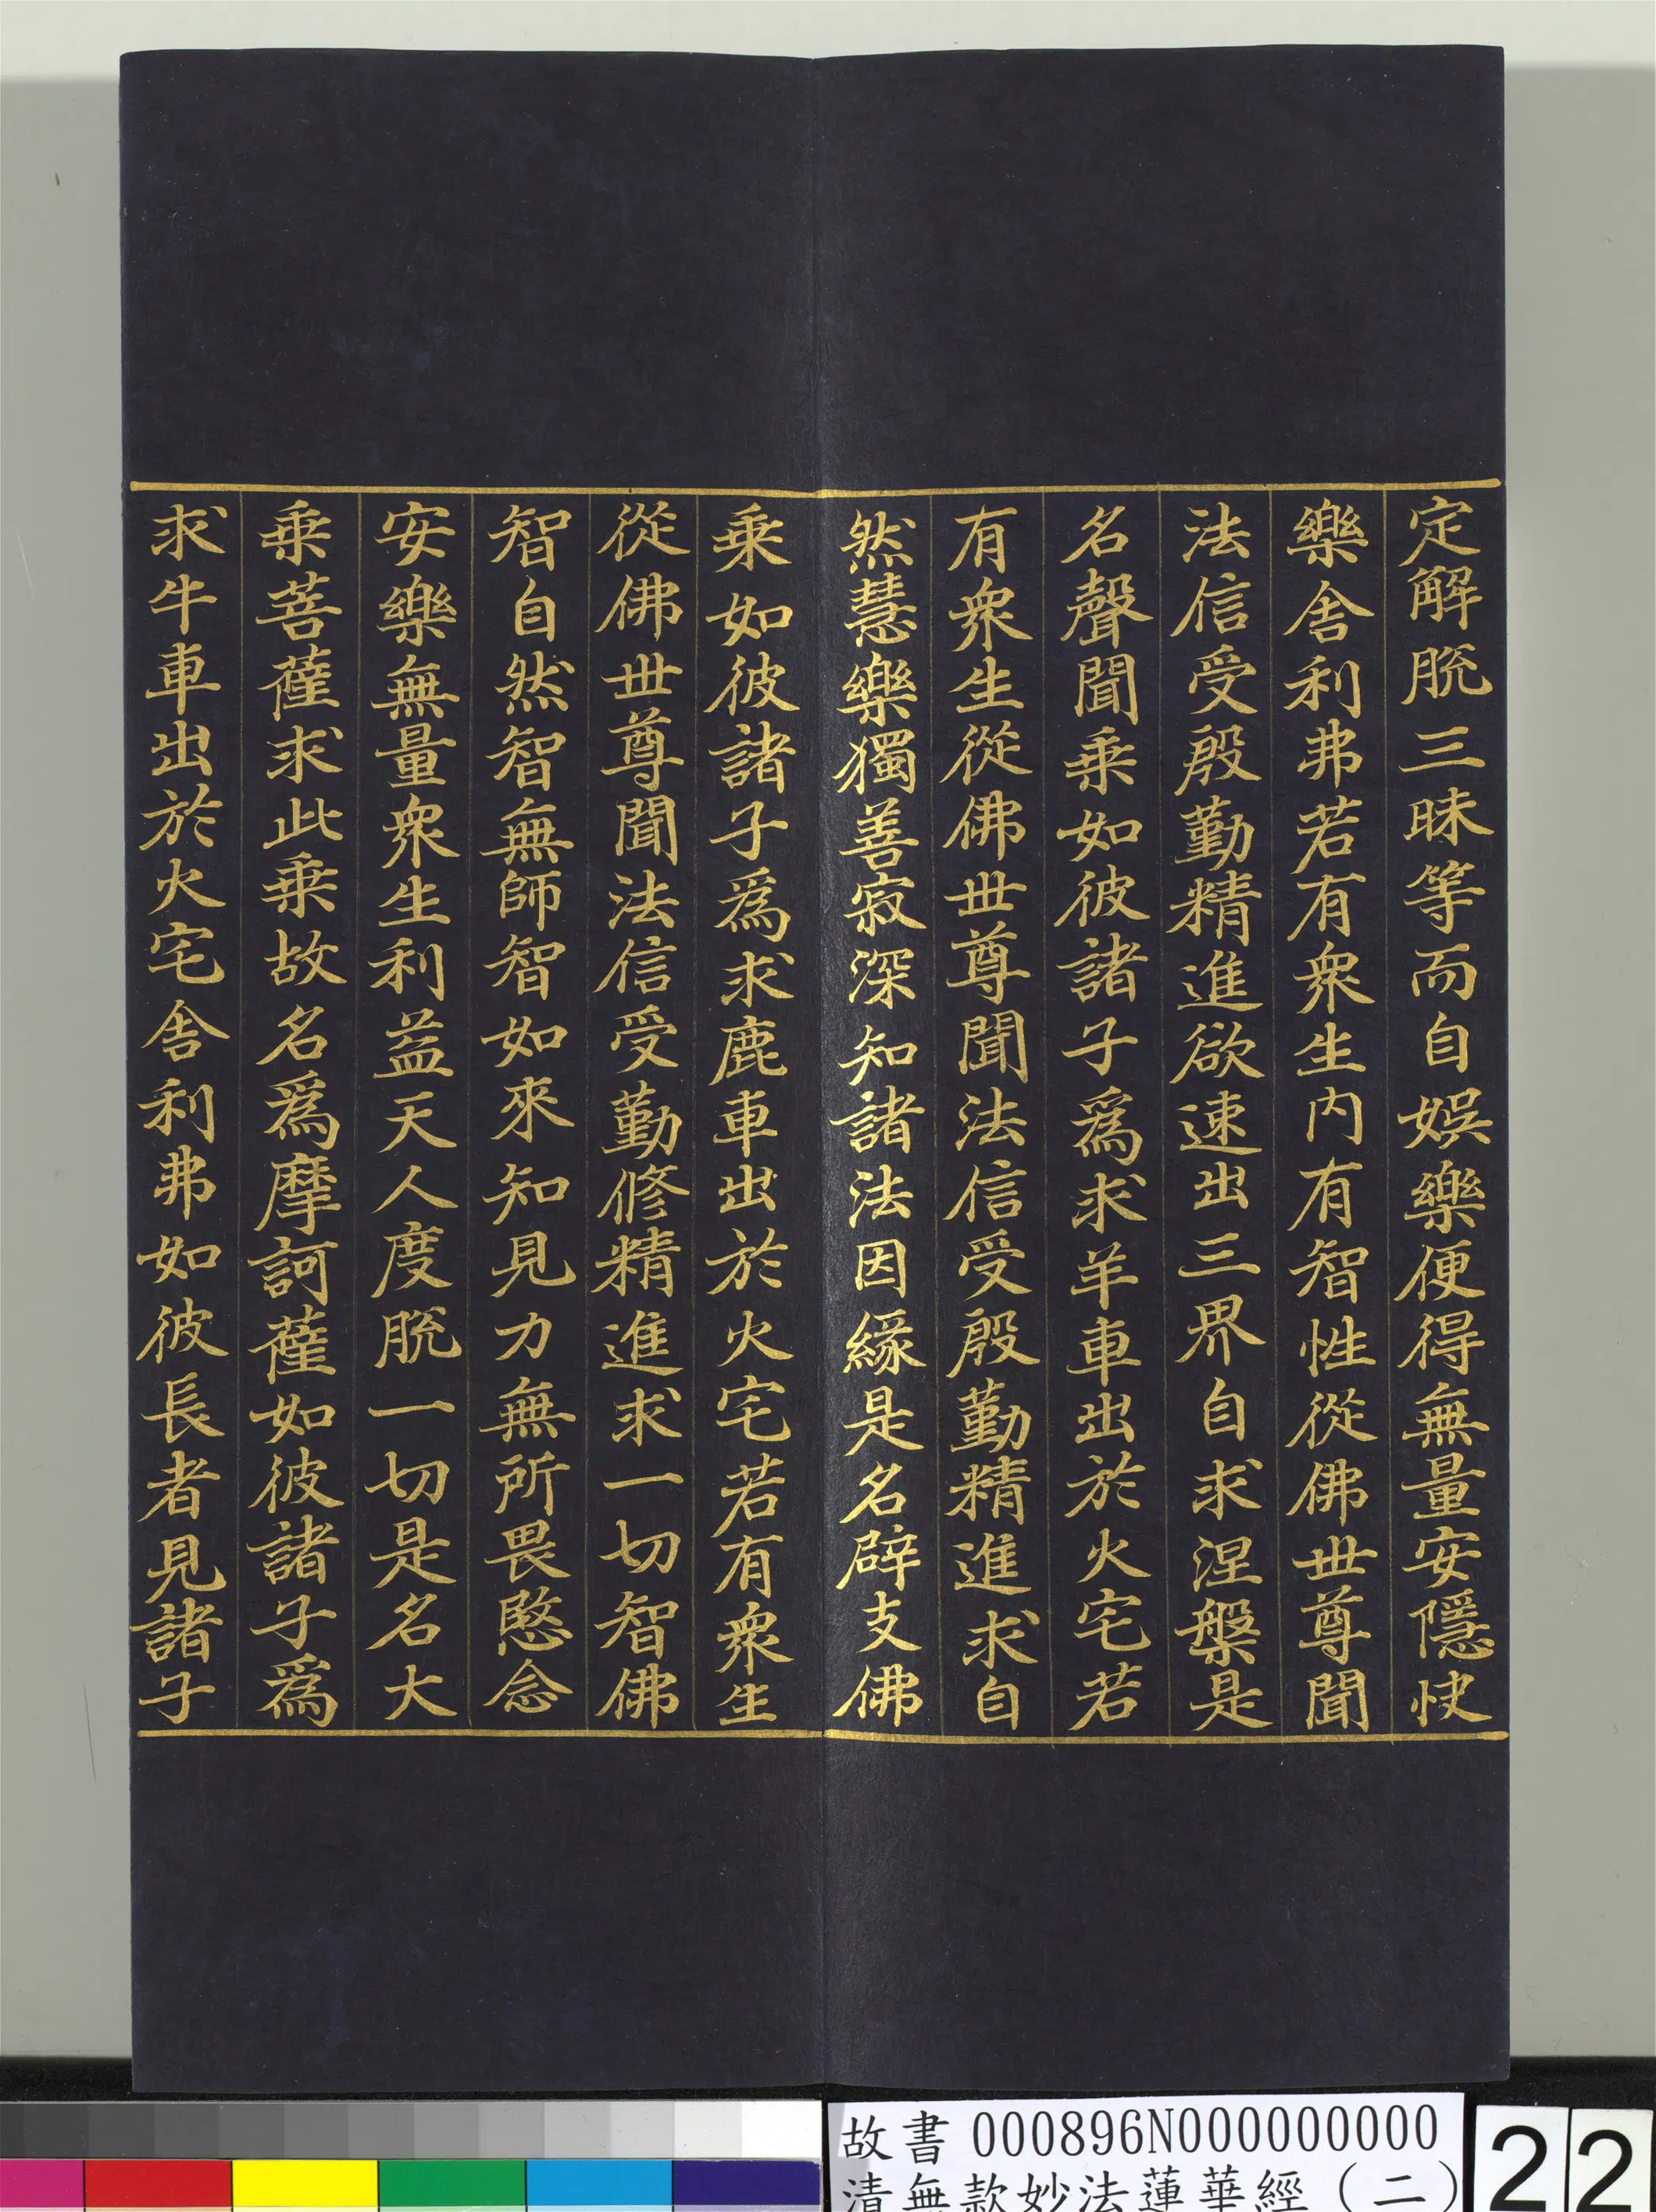 定解脫三昧等而自娛樂便得無量安隱快
樂舍利弗若有衆生內有智性從佛世尊聞
法信受殷勤精進欲速出三界自求涅槃是
名聲聞乘如彼諸子爲求羊車出於火宅若
有衆生從佛世尊聞法信受殷勤精進求自
然慧樂獨善寂深知諸法因緣是名辟支佛
乘如彼諸子爲求鹿車出於火宅若有衆生
從佛世尊聞法信受勤修精進求一切智佛
智自然智無師智如來知見力無所畏愍念
安樂無量衆生利益天人度脫一切是名大
乘菩薩求此乘故名爲摩訶薩如彼諸子爲
求牛車出於火宅舍利弗如彼長者見諸子
故書 000896N000000000
清無款妙法蓮華經（二）
22